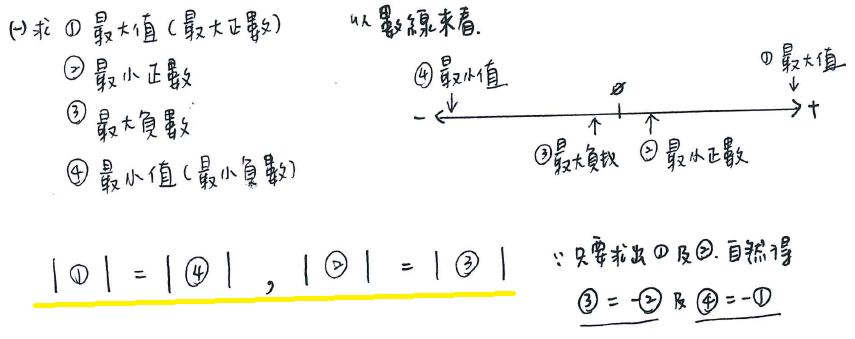 (一)求 ① 最大值(最大正數)
② 最小正數
③ 最大負數
④ 最小值(最小負數)
以數線來看.
④最小值
0
①最大值
- +
③最大負数 ② 最小正數
|①| = |④| , |②| = |③|
∵只要求出①及②.自然得
③ = -② 及 ④ = -①